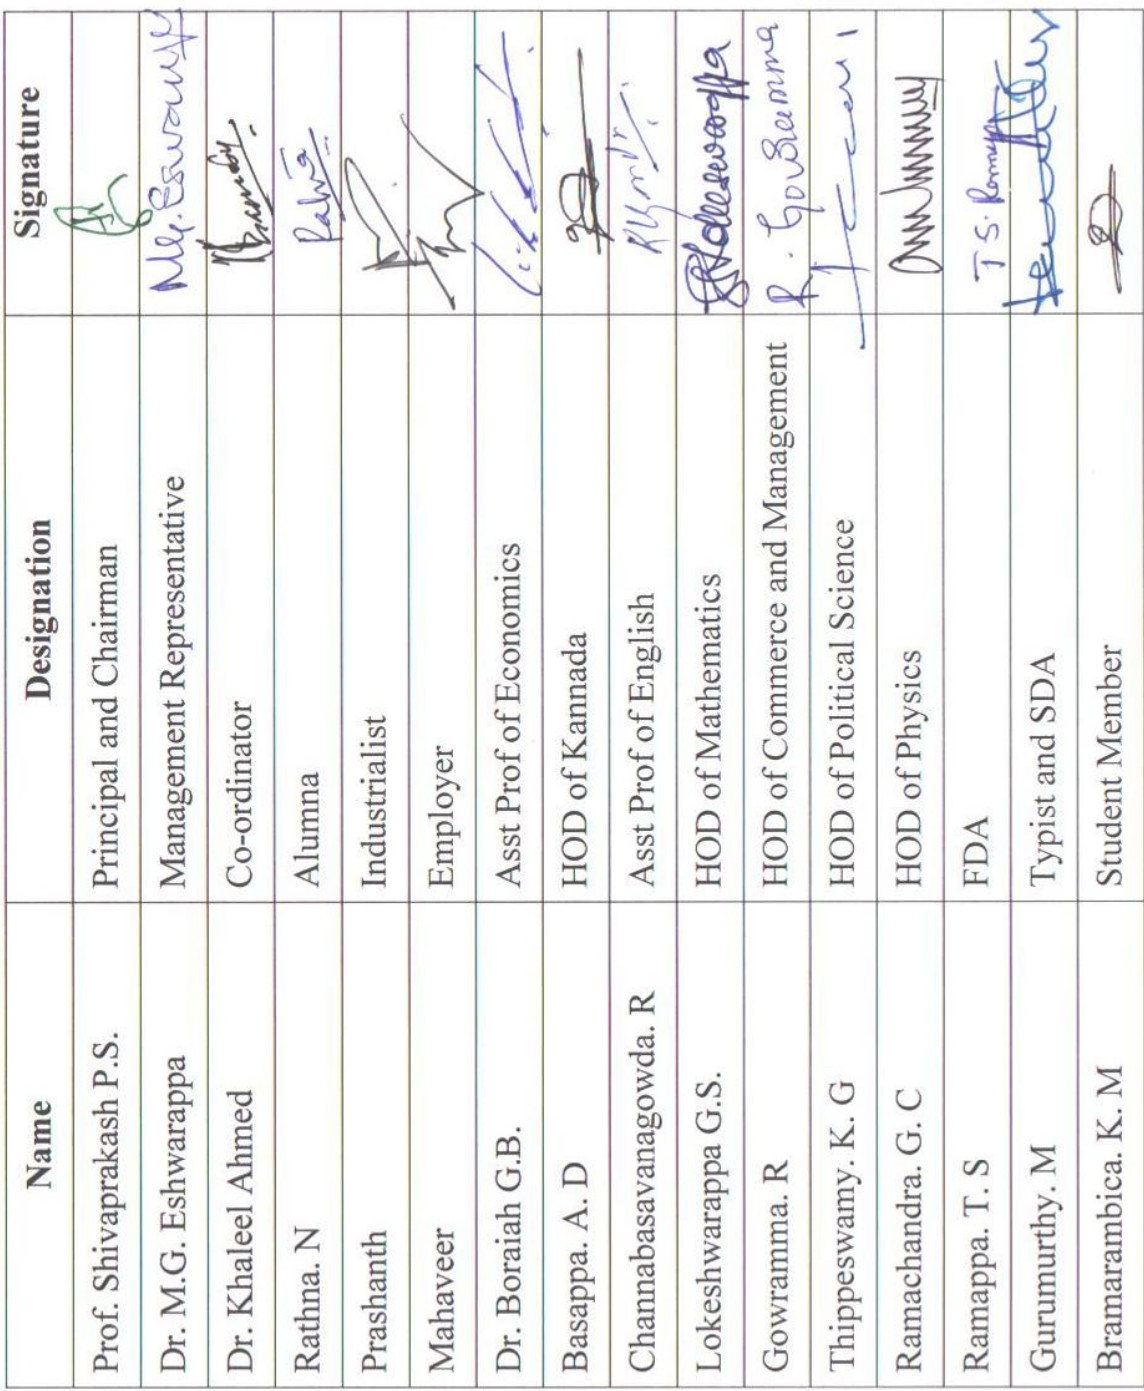 Name Designation Signature
Prof. Shivaprakash P.S. Principal and Chairman
Dr. M.G. Eshwarappa Management Representative
Dr. Khaleel Ahmed Co-ordinator
Rathna. N Alumna
Prashanth Industrialist
Mahaveer Employer
Dr. Boraiah G.B. Asst Prof of Economics
Basappa. A. D HOD of Kannada
Channabasavanagowda. R Asst Prof of English
Lokeshwarappa G.S. HOD of Mathematics
Gowramma. R HOD of Commerce and Management R. Gowramma
Thippeswamy. K. G HOD of Political Science
Ramachandra. G. C HOD of Physics
Ramappa. T. S FDA T S.
Gurumurthy. M Typist and SDA
Bramarambica. K. M Student Member